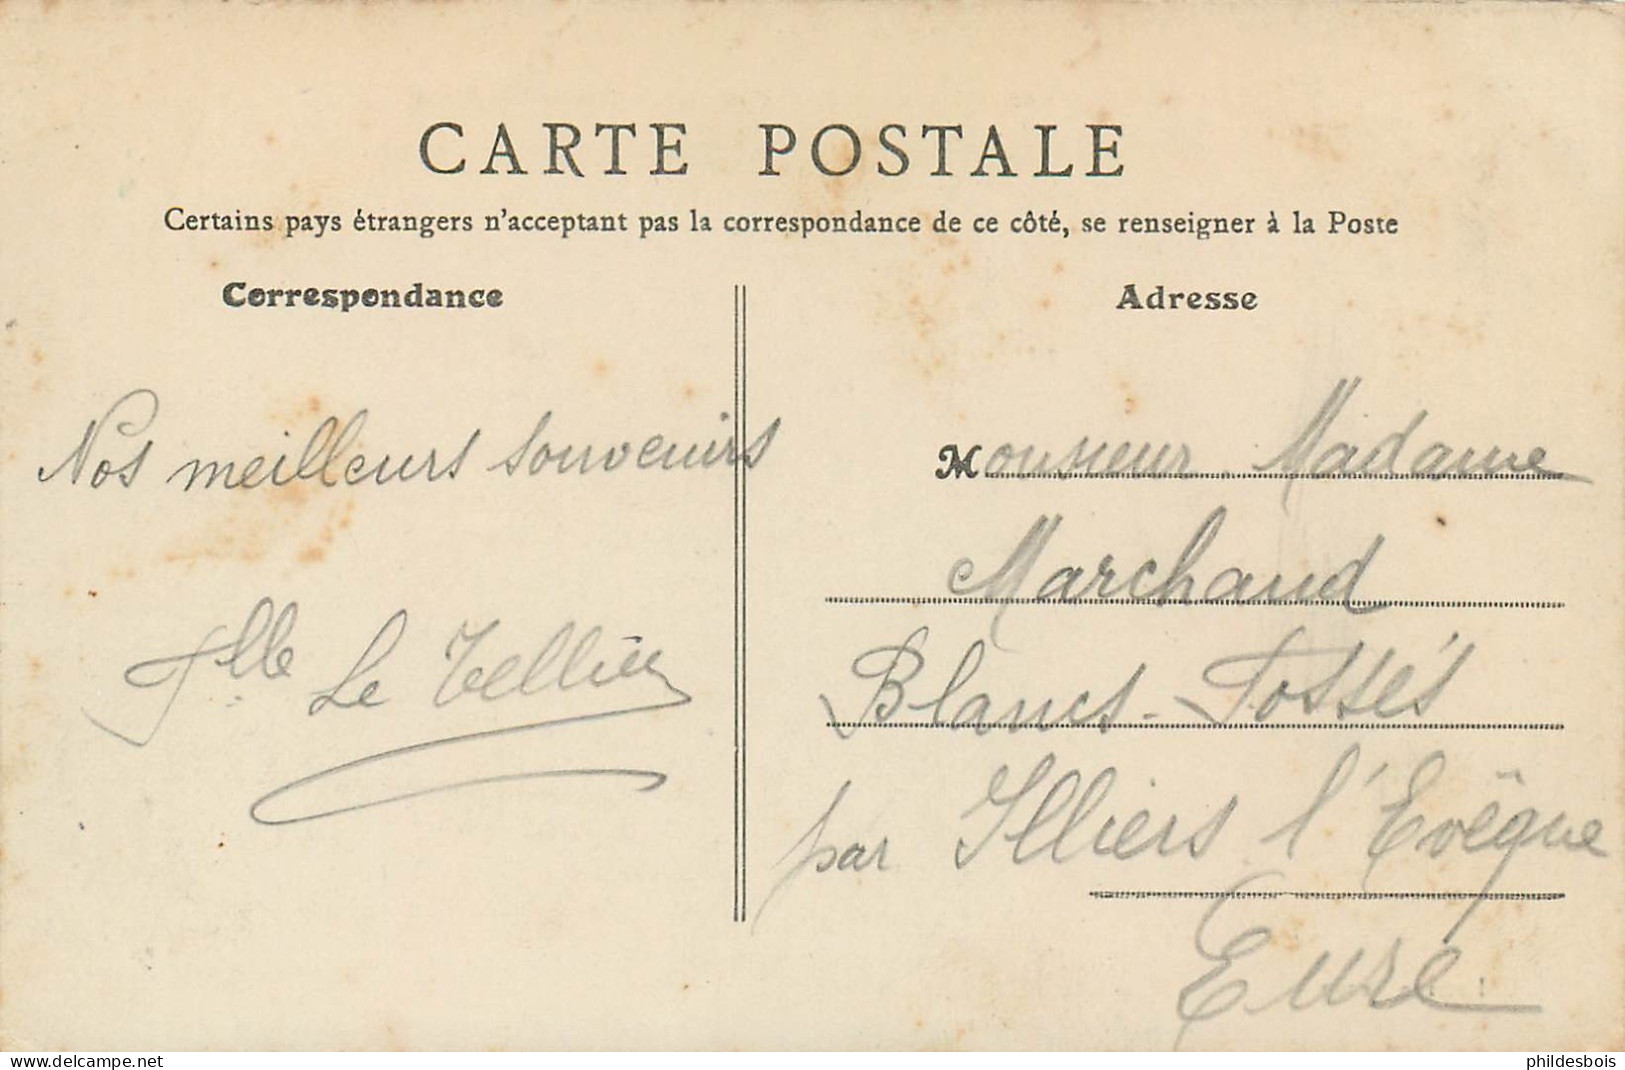 CARTE POSTALE
Certains pays étrangers n'acceptant pas la correspondance de ce côté, se renseigner à la Poste
Correspondance
Nos meilleurs souvenirs
Le Tellier
Adresse
Monsieur Madame
Marchand
Blancs-Fossés
par Illiers l'Evêque
Eure
www.delcampe.net
phildesbois